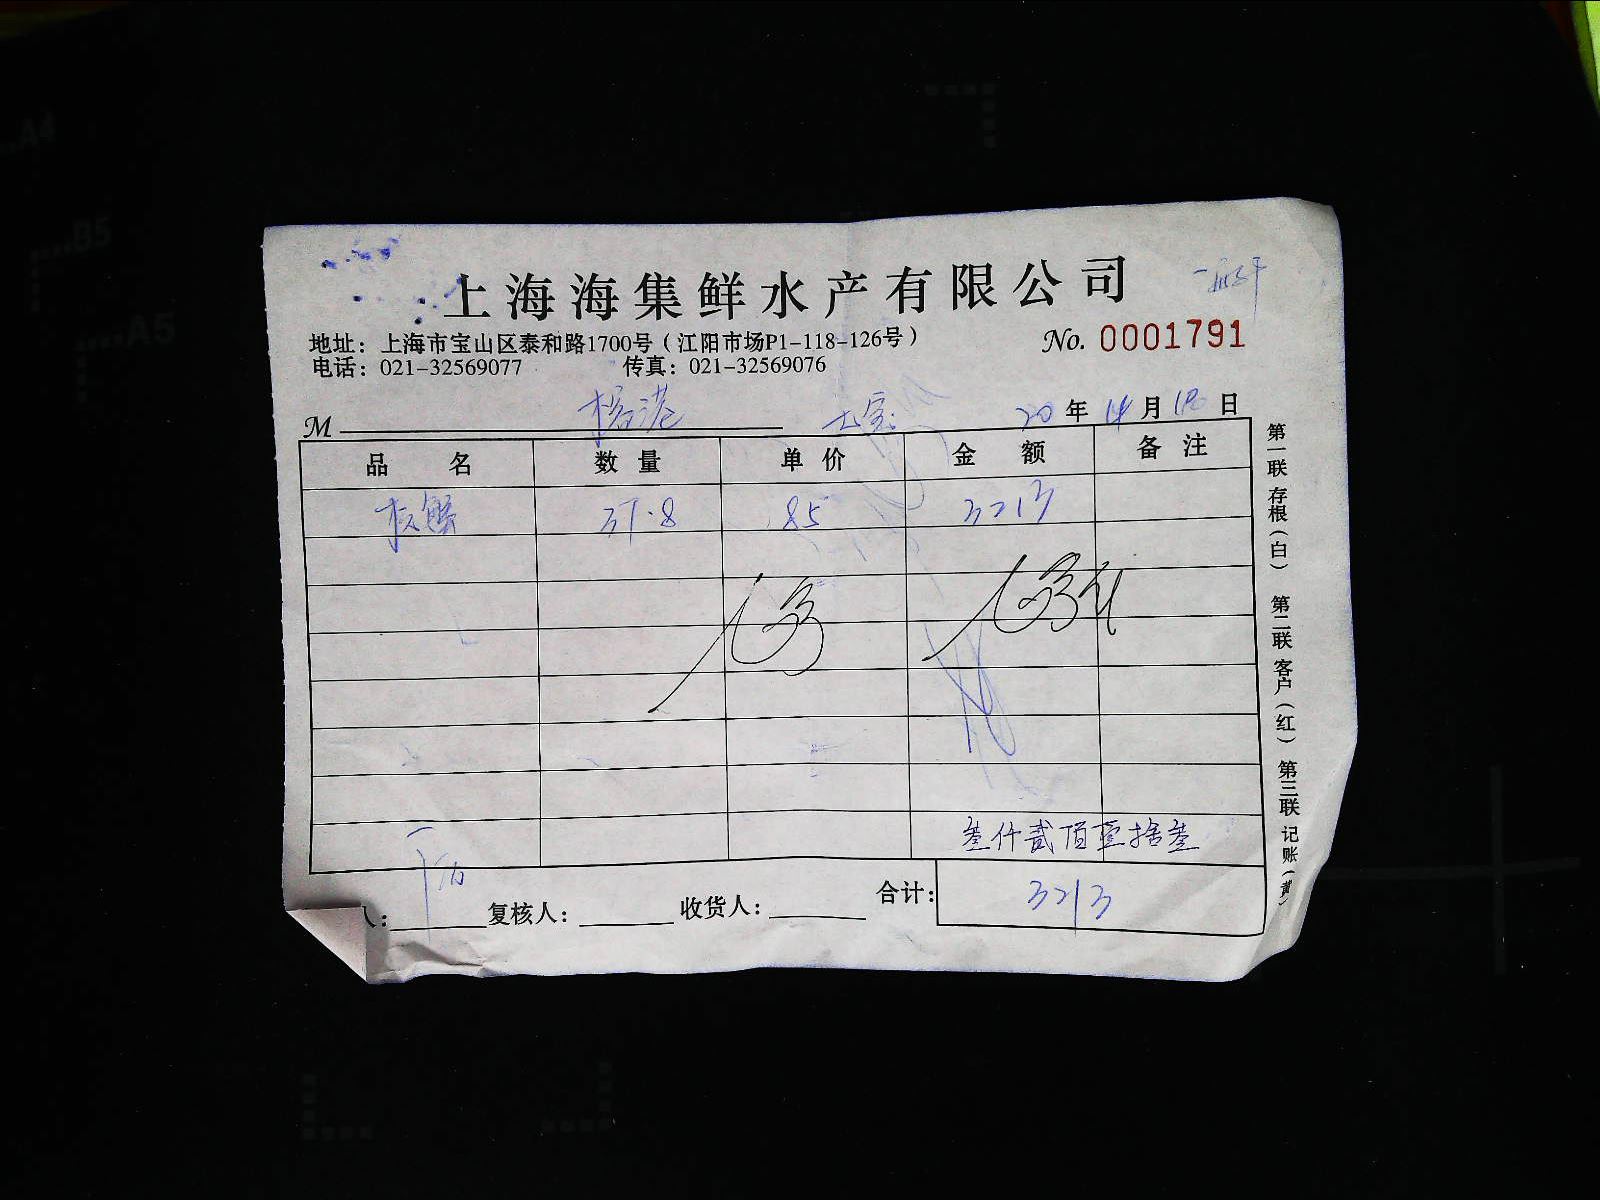 上海海集鲜水产有限公司
地址：上海市宝山区泰和路1700号（江阳市场P1-118-126号）
No. 0001791
电话：021-32569077 传真：021-32569076
M 20 年 月 日
品名 数量 单价 金额 备注
37.8 85 3213
叁仟贰佰壹拾叁
人： 复核人： 收货人： 合计： 3213
第一联 存根（白） 第二联 客户（红） 第三联 记账（黄）
A4
B5
A5